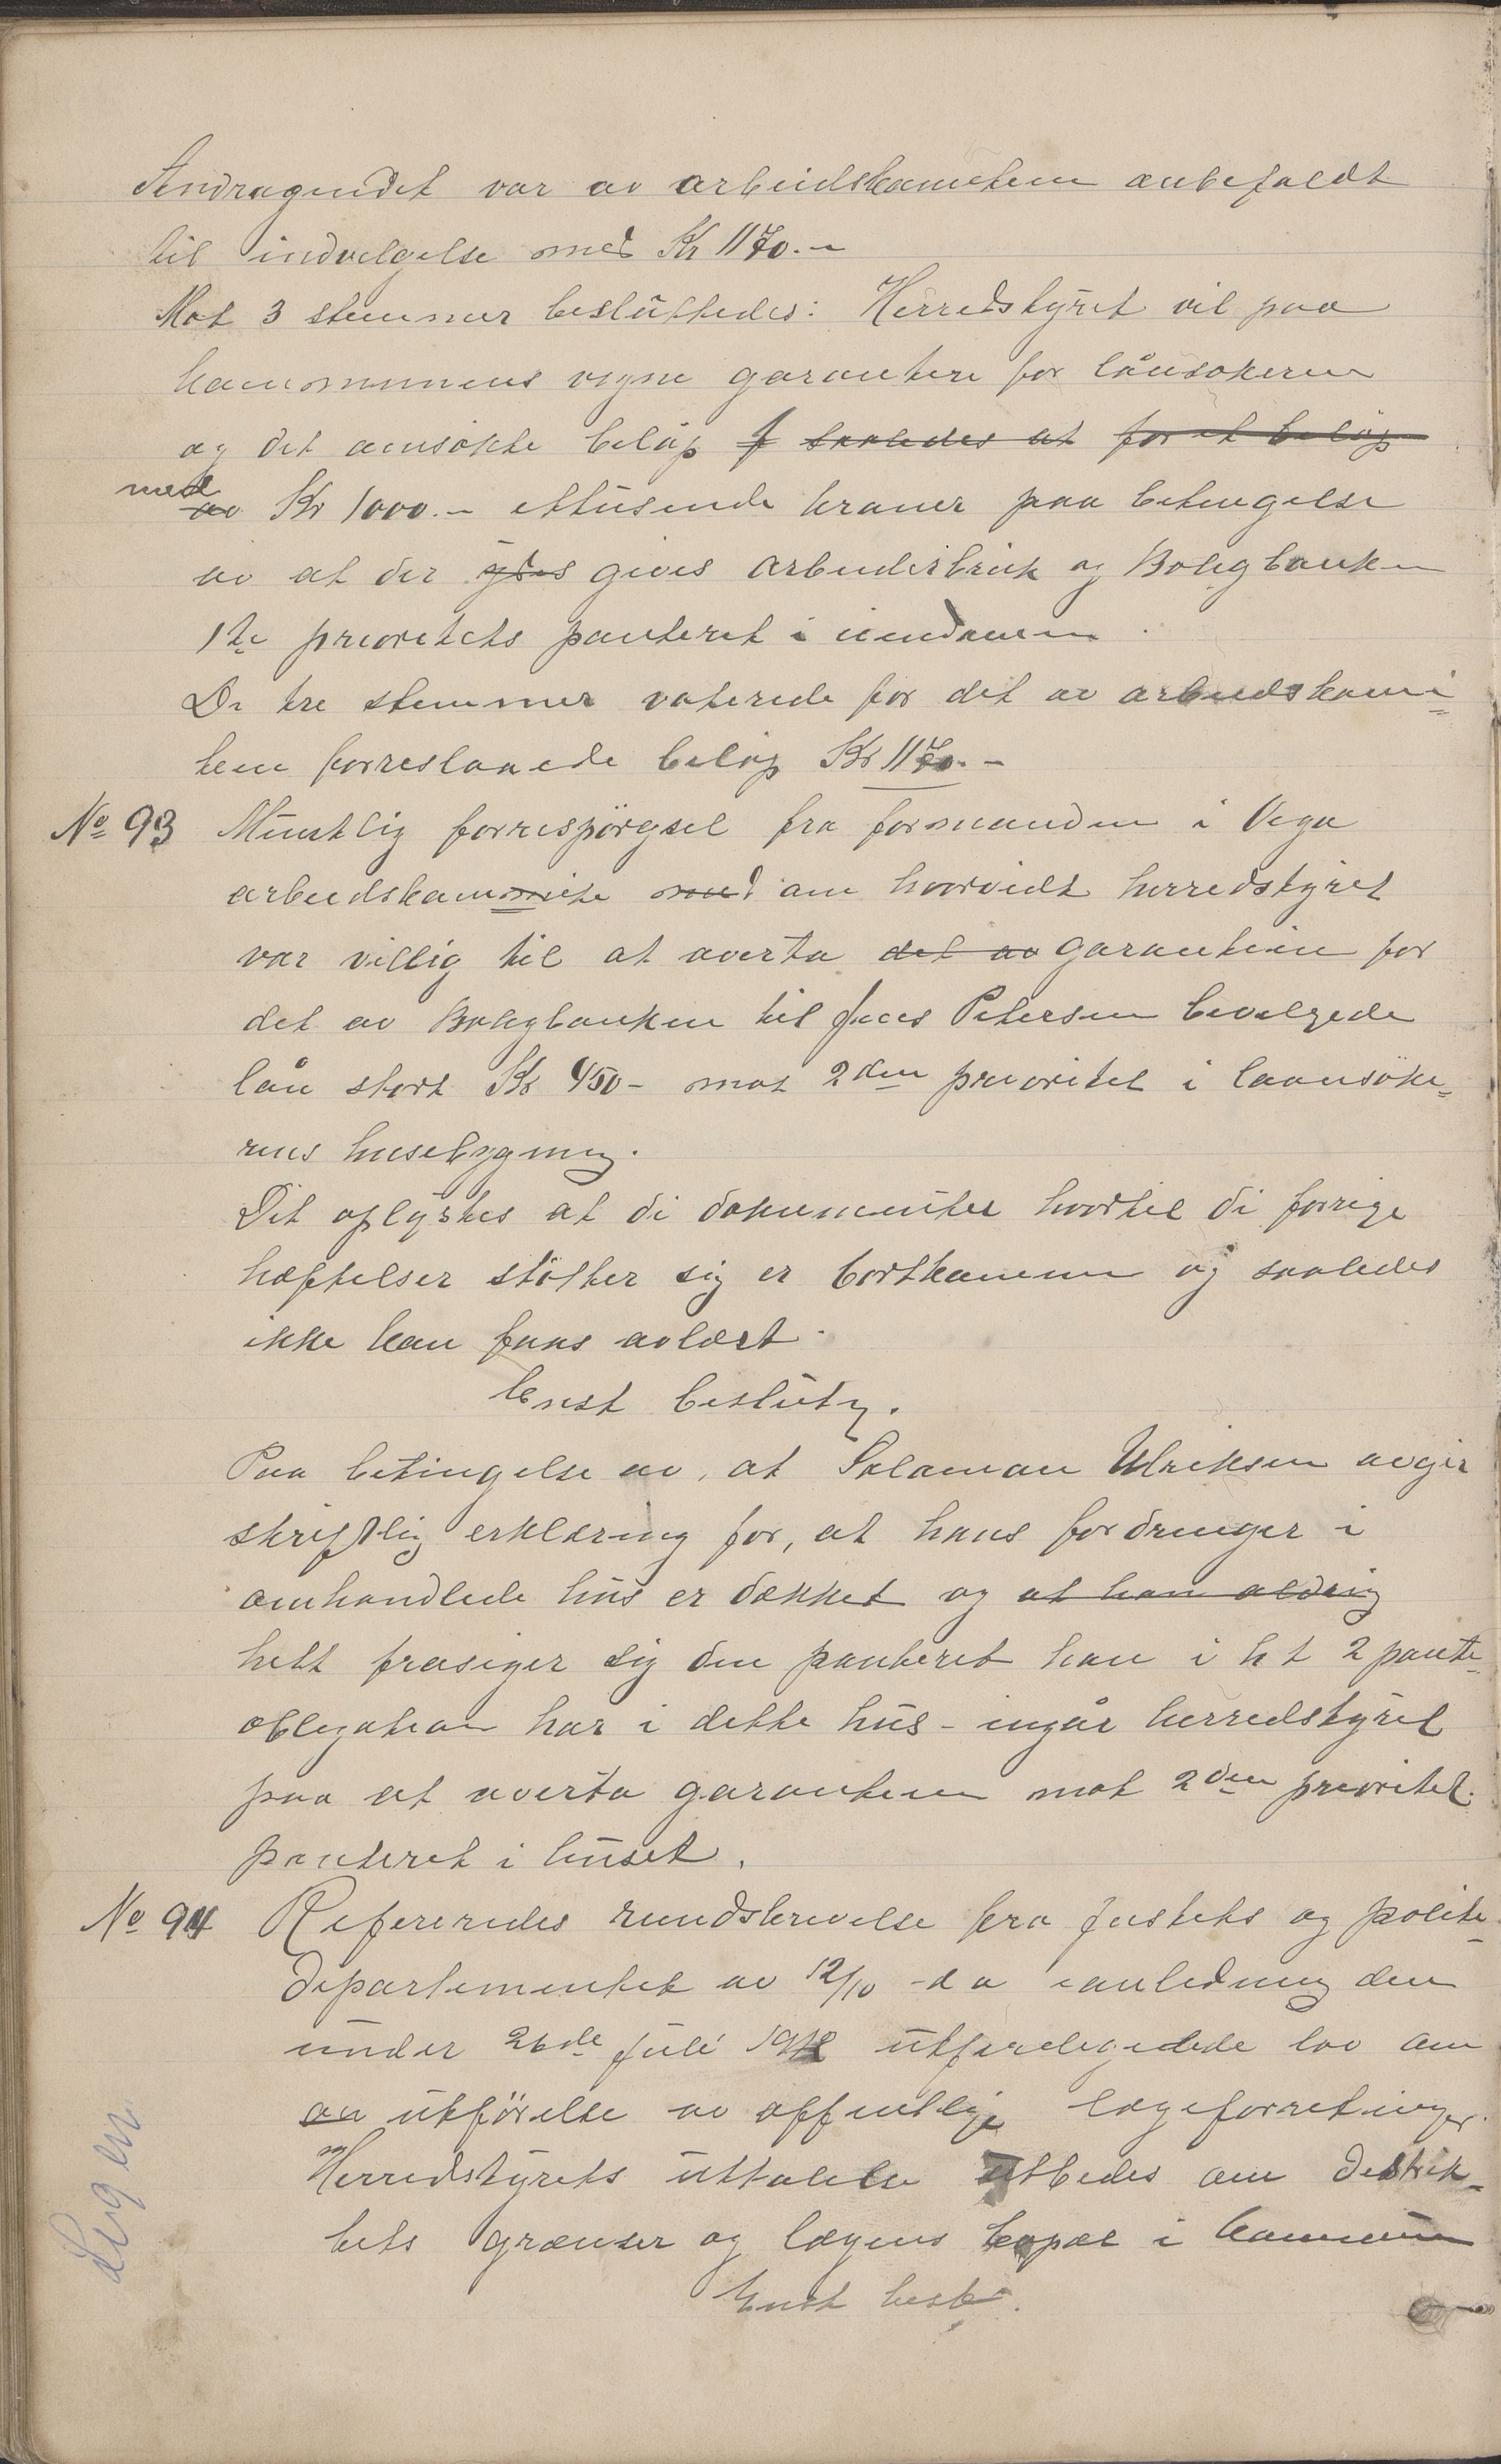 Andragendet var av arbeidskomiteen anbefaldt
til indvelgelse med Kr 1170.–
Mot 3 stemmer besluttedes: Herredstyret vil paa
kommunens vegne garantere for lånsøkeren
og det ansøkte beløp f saaledes at for et beløp
med
av Kr 1000.– ettusende kroner paa betingelse
av at der gives gives Arbeiderbruk og Boligbanken
1te prioritets panteret i eiendomen.
De tre stemmer voterede for det av arbeidskomi-
teen forreslaaede beløp Kr 1170.–
No 93 Muntlig forrespørgsel fra formanden i Vega
arbeidskommite med om hvorvidt herredstyret
var villig til at overta det av garantien for
det av Boligbanken til Jens Petersen bevelgede
lån stort Kr 450– mot 2den prioritet i laansøke-
rens husebygning.
Det oplystes at de dokumenter hvortil de forrige
hæftelser støtter sig er bortkommen og saaledes
ikke kan faaes avlæst.
Enst beslutn.
Paa betingelse av, at Salamon Ulriksen avgir
skriftlig erklæring for, at hans fordringer i
omhandlede hus er dækket og at han aldrig
helt frasiger sig den panteret han i h t 2 pante-
obligation har i dette hus – ingår herredstyret
paa at overta garantien mot 2den prioritet.
panteret i huset.
No 94 Refereredes rundskrivelse fra Justits og politi-
departementet av 12/10 d a i anledning den
under 26de juli 1912 utfærdigede lov om
av utførelse av offentlige lægeforretninger.
Herredstyrets uttalelse utbedes om distrik-
tets grænser og lægens bopæl i kommunen
Enst besl.